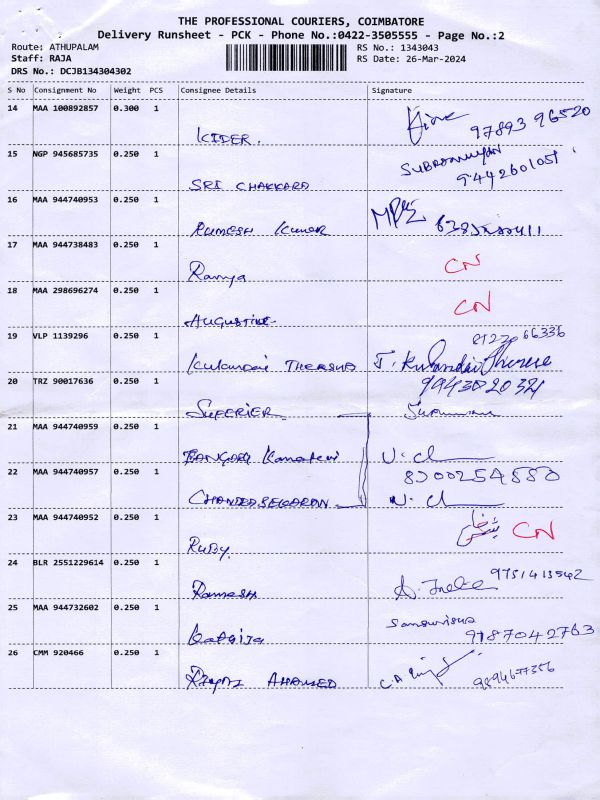 THE PROFESSIONAL COURIERS, COIMBATORE
Delivery Runsheet - PCK - Phone No.:0422-3505555 - Page No.:2
Route: ATHUPALAM RS No.: 1343043
Staff: RAJA RS Date: 26-Mar-2024
DRS No.: DCJB134304302
S No Consignment No Weight PCS Consignee Details Signature
14 MAA 100892857 0.300 1
KIDER. 97893 96520
15 NGP 945685735 0.250 1
SRI CHAKKARA 9442601051
16 MAA 944740953 0.250 1
Ramesh Kumar
17 MAA 944738483 0.250 1
Ramya CN
18 MAA 298696274 0.250 1
AUGUSTINE CN
19 VLP 1139296 0.250 1
66336
Kulandai THERSUD J. Kulandai Therese
20 TRZ 90017636 0.250 1 9943020321
SUPERIER
21 MAA 944740959 0.250 1
22 MAA 944740957 0.250 1 8300254550
CHANDRASEGARAN
23 MAA 944740952 0.250 1
Ruby. CN
24 BLR 2551229614 0.250 1
Ramesh 9751413542
25 MAA 944732602 0.250 1
Kathija 9187042763
26 CMM 920466 0.250 1
AHAMED 9894677356